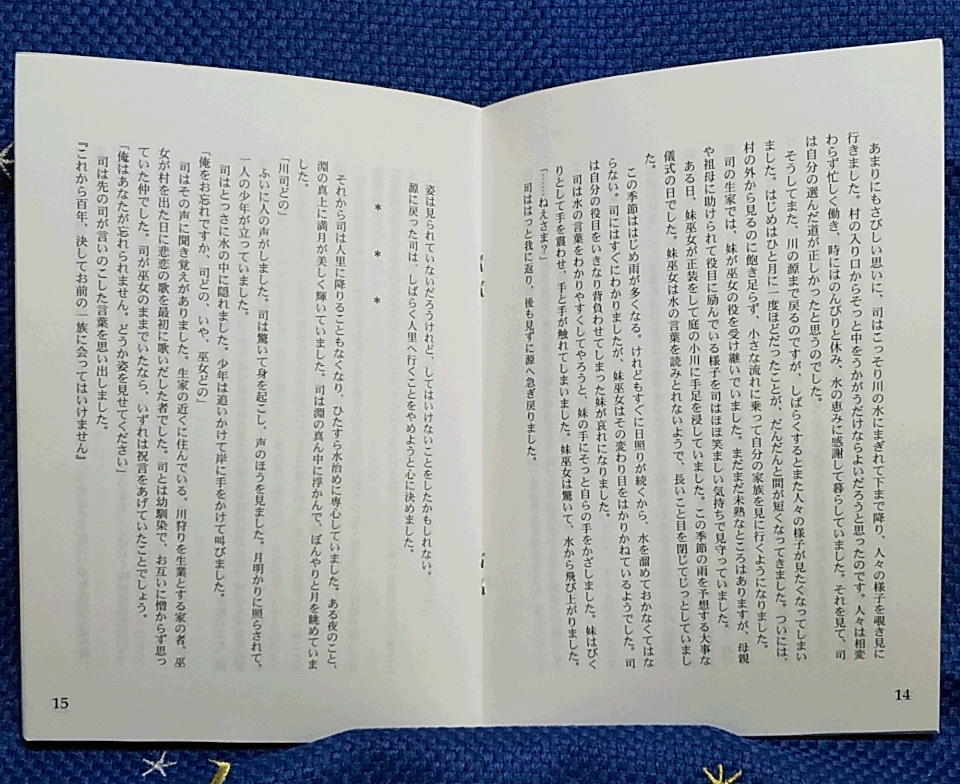 あまりにもさびしい思いに、司はこっそり川の水にまぎれて下まで降り、人々の様子を覗き見に
行きました。村の入り口からそっと中をうかがうだけならよいだろうと思ったのです。人々は相変
わらず忙しく働き、時にはのんびりと休み、水の恵みに感謝して暮らしていました。それを見て、司
は自分の選んだ道が正しかったと思うのでした。
そうしてまた、川の源まで戻るのですが、しばらくするとまた人々の様子が見たくなってしまい
ました。はじめはひと月に一度ほどだったことが、だんだんと間が短くなってきました。ついには、
村の外から見るのに飽き足らず、小さな流れに乗って自分の家族を見に行くようになりました。
司の生家では、妹が巫女の役を受け継いでいました。まだまだ未熟なところはありますが、母親
や祖母に助けられて役目に励んでいる様子を司はほほ笑ましい気持ちで見守っていました。
ある日、妹巫女が正装をして庭の小川に手足を浸していました。この季節の雨を予想する大事な
儀式の日でした。妹巫女は水の言葉を読みとれないようで、長いこと目を閉じてじっとしていまし
た。
この季節ははじめ雨が多くなる。けれどもすぐに日照りが続くから、水を溜めておかなくてはな
らない。司にはすぐにわかりましたが、妹巫女はその変わり目をはかりかねているようでした。司
は自分の役目をいきなり背負わせてしまった妹が哀れになりました。
司は水の言葉をわかりやすくしてやろうと、妹の手にそっと自らの手をかざしました。妹はびく
りとして手を震わせ、手と手が触れてしまいました。妹巫女は驚いて、水から飛び上がりました。
「……ねえさま?」
司ははっと我に返り、後も見ずに源へ急ぎ戻りました。
14
姿は見られていないだろうけれど、してはいけないことをしたかもしれない。
源に戻った司は、しばらく人里へ行くことをやめようと心に決めました。
* * *
それから司は人里に降りることもなくなり、ひたすら水治めに専心していました。ある夜のこと、
淵の真上に満月が美しく輝いていました。司は淵の真ん中に浮かんで、ぼんやりと月を眺めていま
した。
「川司どの」
ふいに人の声がしました。司は驚いて身を起こし、声のほうを見ました。月明かりに照らされて、
一人の少年が立っていました。
司はとっさに水の中に隠れました。少年は追いかけて岸に手をかけて叫びました。
「俺をお忘れですか、司どの、いや、巫女どの」
司はその声に聞き覚えがありました。生家の近くに住んでいる、川狩りを生業とする家の者、巫
女が村を出た日に悲恋の歌を最初に歌いだした者でした。司とは幼馴染で、お互いに憎からず思っ
ていた仲でした。司が巫女のままでいたなら、いずれは祝言をあげていたことでしょう。
「俺はあなたが忘れられません。どうか姿を見せてください」
司は先の司が言いのこした言葉を思い出しました。
『これから百年、決してお前の一族に会ってはいけません』
15